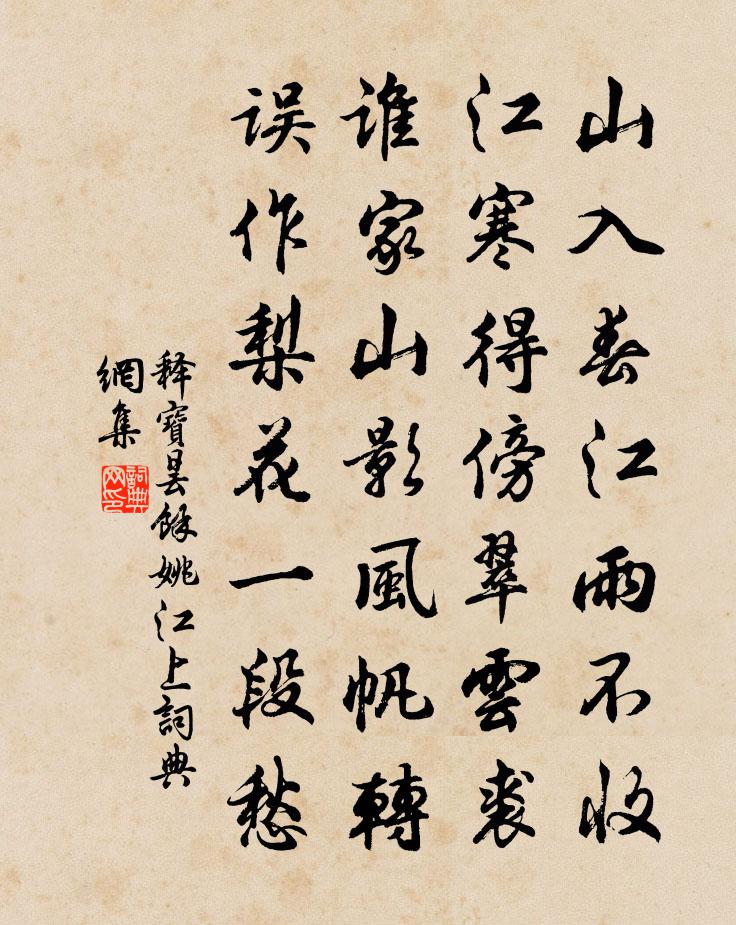 山入春江雨不收
江寒得傍翠雲裘
誰家山影風帆轉
误作梨花一段愁
释寶昙餘姚江上詞典
網集
詞典
网印